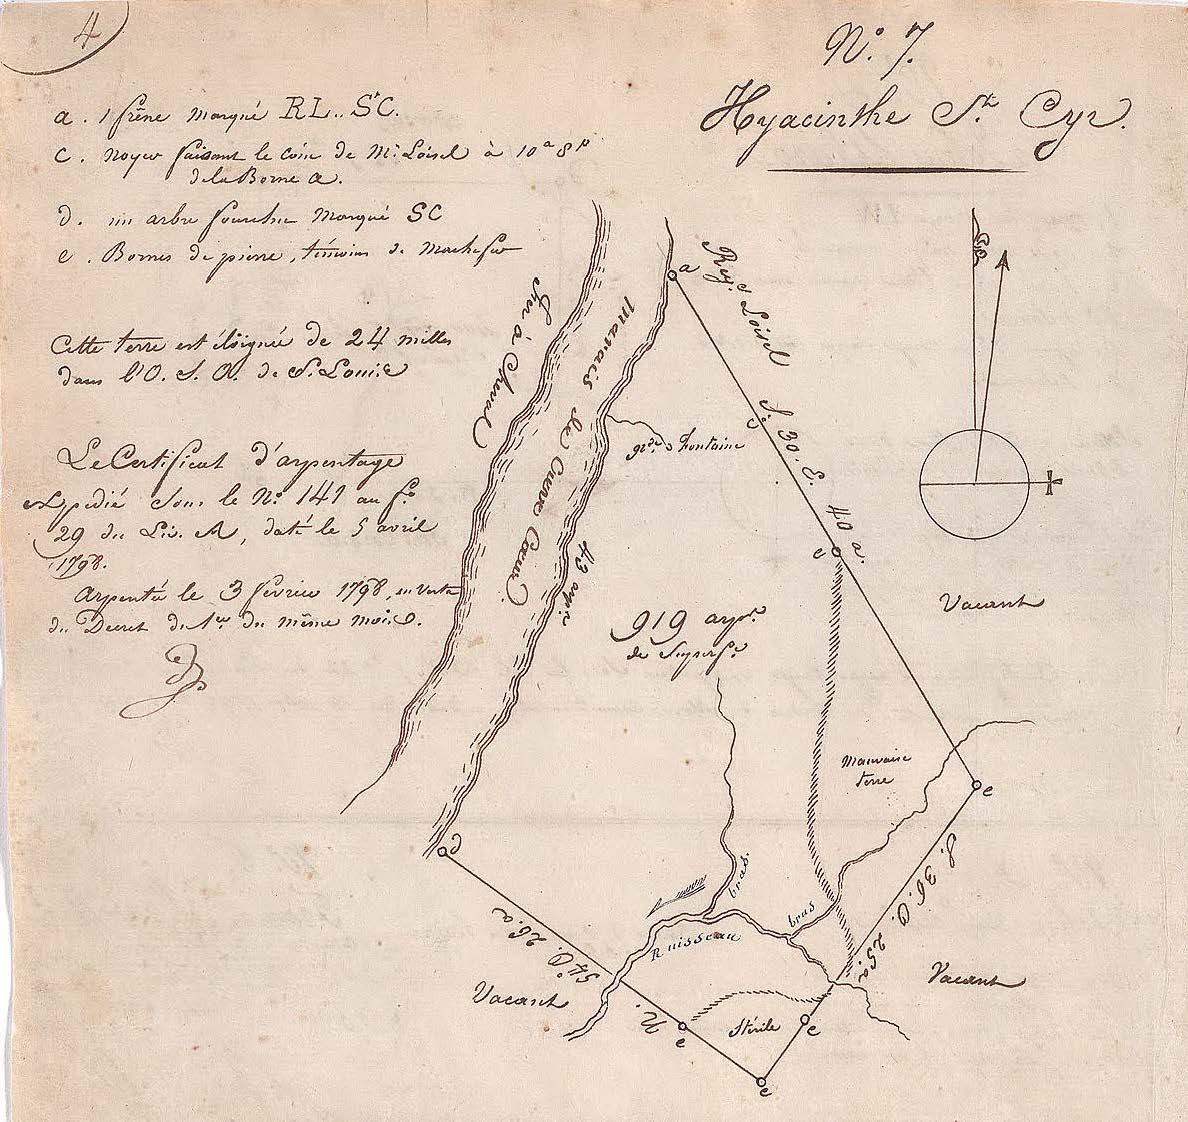 4
N° 7.
Hyacinthe St. Cyr.
a. 1 frêne marqué RL.. St C.
c. Noyer faisant le coin de Mr. Loisel à 10a 8p
de la Borne a.
d. un arbre fourchu marqué SC
e. Bornes de pierre, témoins de Machefer
Cette terre est éloignée de 24 milles
dans l'O. S. O. de St. Louis
Le Certificat d'arpentage
expédié sous le N° 141 au fo.
29 du Liv. A, daté le 5 avril
1798.
arpenté le 3 février 1798, en vertu
du Decret du 1er du même mois.
a
Regd. Loisel
c
S. 30. E. 40 a.
e
Fer à Cheval
Marais de Creve Coeur
43 arp.
grde. Fontaine
919 arpts.
de Superfe.
Vacant
Mauvaise
terre
e
S. 36. O. 25 a
d
N. 54° O. 26. a
Ruisseau
bras.
bras
Vacant
Vacant
Stérile
e
e
e